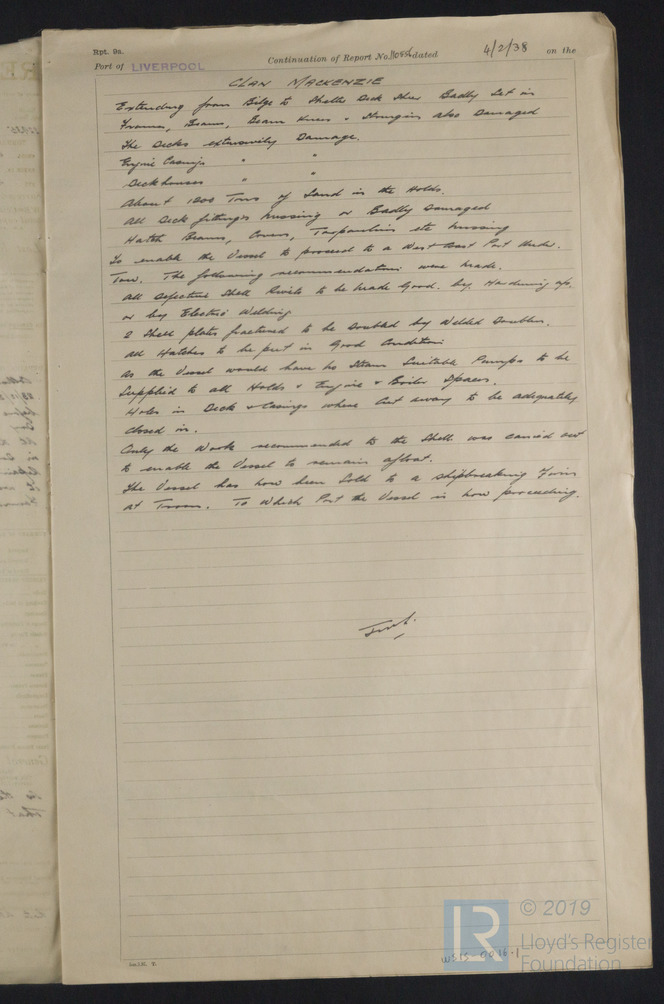 Rpt. 9a.
Port of LIVERPOOL Continuation of Report No. dated 4/2/38 on the
CLAN MACKENZIE
Extending from Bilge to Shelter Deck Badly Set in
Frames, Beams, Beam Knees & Stringers also Damaged
The Decks extensively Damage.
Engine Casings " "
Deckhouses " "
About 1200 Tons of Sand in the Holds.
All Deck fittings missing or Badly Damaged
Hatch Beams, Covers, Tarpaulins etc missing
To enable the Vessel to proceed to a West Coast Port Under.
Tow. The following recommendations were made.
All Defective Shell Rivets to be made Good. by Hardening up.
or by Electric Welding
2 Shell plates fractured to be Doubled by Welded Doublers.
All Hatches to be put in Good Condition
As the Vessel would have no Steam Suitable Pumps to be
Supplied to all Holds & Engine & Boiler Spaces.
Holes in Deck & Casings where Cut away to be adequately
Closed in.
Only the Work recommended to the Shell was carried out
to enable the Vessel to remain afloat.
The Vessel has now been Sold to a shipbreaking Firm
at Troon. To which Port the Vessel is now proceeding.
© 2019
LR
Lloyd's Register
Foundation